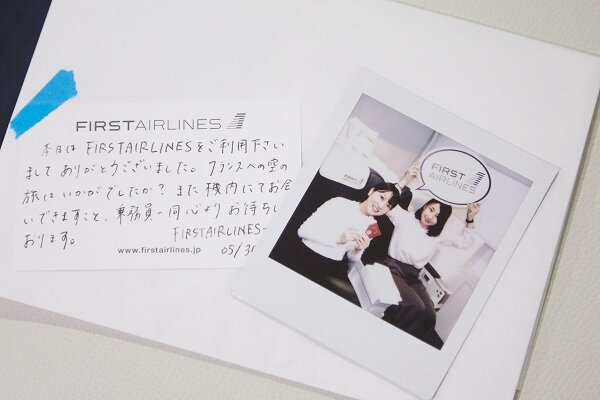 FIRSTAIRLINES
本日は FIRSTAIRLINESをご利用下さい
まして ありがとうございました。フランスへの空の
旅は いかがでしたか？また 機内にてお会
いできますこと、乗務員一同心よりお待ちし
おります。 FIRSTAIRLINES-
www.firstairlines.jp 05/30
FIRST
AIRLINES